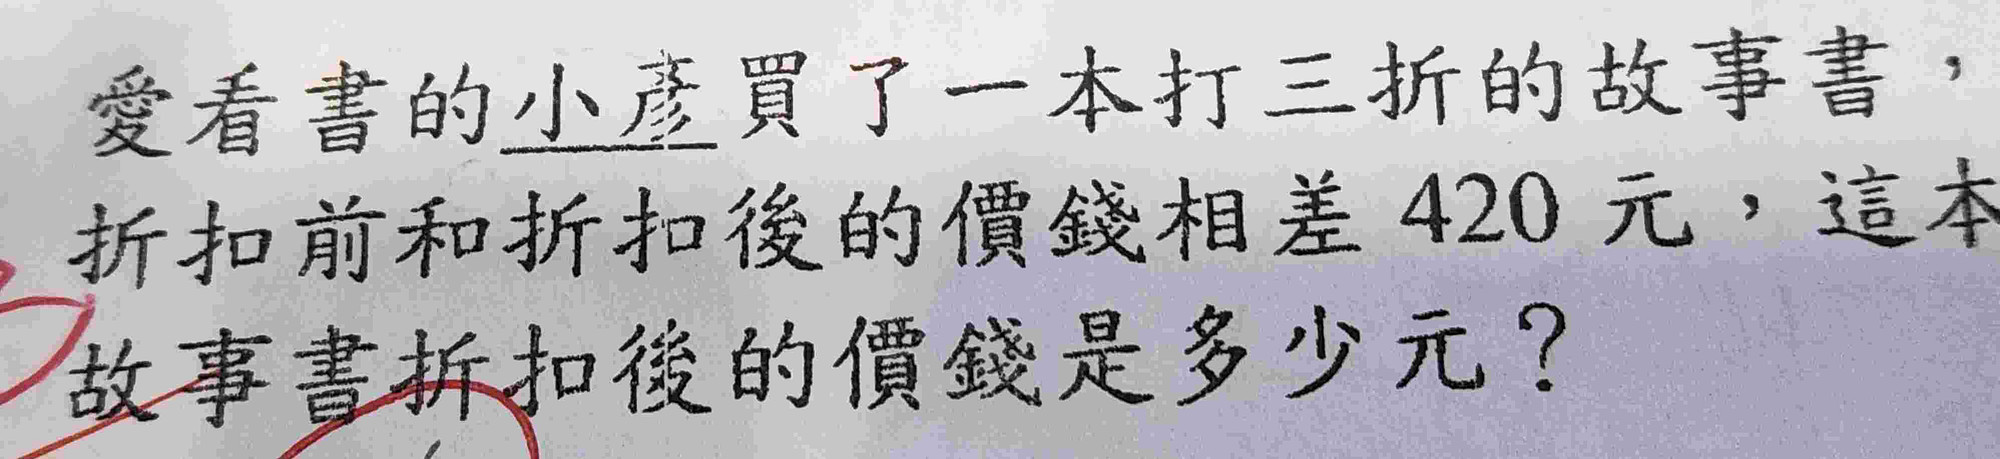 愛看書的小彥買了一本打三折的故事書，
折扣前和折扣後的價錢相差 420 元，這本
故事書折扣後的價錢是多少元？